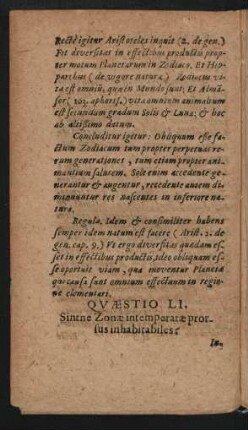 Rectè igitur Aristoteles inquit (2. de gen.)
Fit diversitas in effectuum productis prop-
ter motum Planetarum in Zodiaco. Et Hip-
parchus (de vigore naturæ) Zodiacus vi-
ta est omniũ, quæ in Mundo sunt; Et Almã-
sor (103. aphoris.) vita omnium animalium
est secundum gradum Solis & Lunæ; & hoc
ab altissimo datum.
Concluditur igitur: Obliquum esse fa-
ctum Zodiacum tum propter perpetuas re-
rum generationes, tum etiam propter ani-
mantium salutem. Sole enim accedente ge-
nerantur & augentur, recedente autem di-
minuuntur res nascentes in inferiore na-
tura.
Regula. Idem & consimiliter habens
semper idem natum est facere (Arist. 2. de
gen. cap. 9.) Ut ergo diversitas quædam es-
set in effectibus productis, ideo obliquam es-
se oportuit viam, qua moventur Planetæ
qui causa sunt omnium effectuum in regio-
ne elementari.
QVÆSTIO LI.
Sintne Zonæ intemperatæ pror-
sus inhabitabiles?